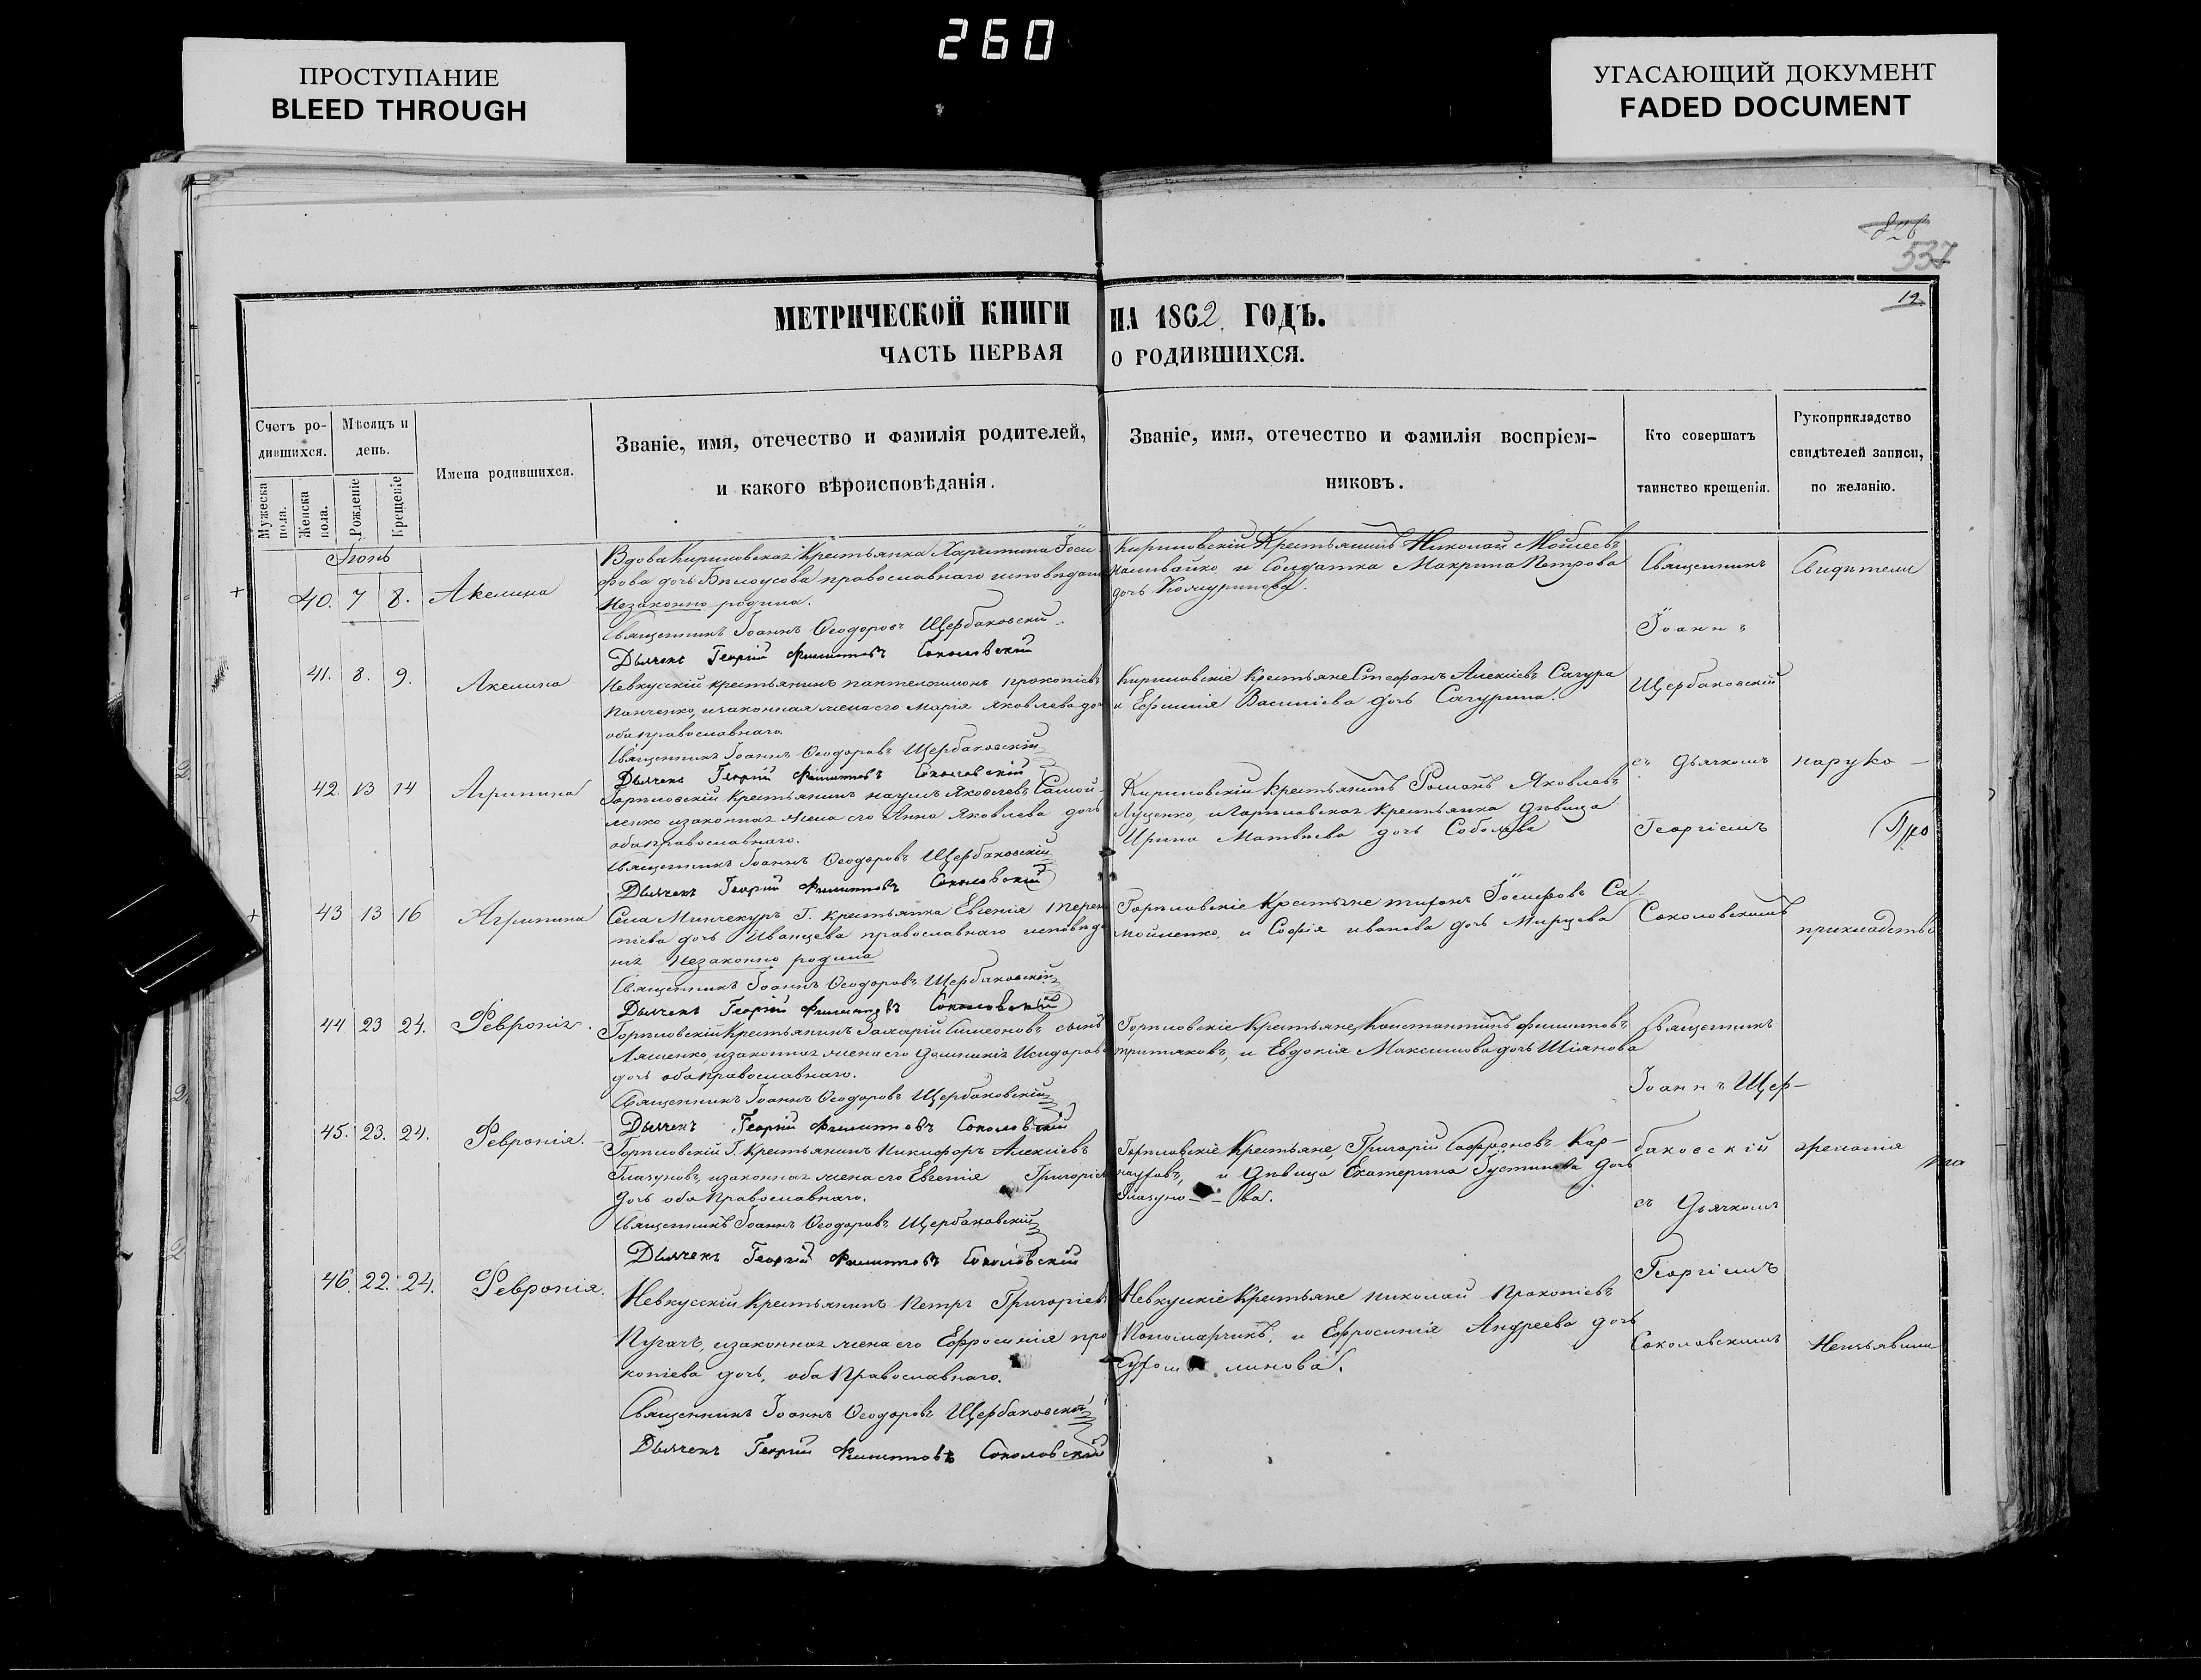 260
ПРОСТУПАНИЕ
BLEED THROUGH
УГАСАЮЩИЙ ДОКУМЕНТ
FADED DOCUMENT
537
12
МЕТРИЧЕСКОЙ КНИГИ НА 1862 ГОДЪ.
ЧАСТЬ ПЕРВАЯ О РОДИВШИХСЯ.
Счетъ ро-
дившихся.
Мѣсяцъ и
день.
Мужеска
пола.
Женска
пола.
Рожденіе
Крещеніе
Имена родившихся.
Званіе, имя, отечество и фамилія родителей,
и какого вѣроисповѣданія.
Званіе, имя, отечество и фамилія воспріем-
никовъ.
Кто совершатъ
таинство крещенія.
Рукоприкладство
свидѣтелей записи,
по желанію.
Іюнь
40. 7 8. Акелина
Вдова Кириловская Крестьянка Харитина Іоси
фова дочь Бѣлоусова православнаго исповѣдан
Незаконно родила.
Священникъ Іоаннъ Ѳеодоровъ Щербаковскій
Дьячекъ Георгій Филиповъ Соколовскій
Кириловскій Крестьянинъ Николай Мойсеевъ
Наливайко, и Солдатка Макрина Петрова
дочь
41. 8. 9. Акелина
Невкускій крестьянинъ Пантелеимонъ Прокопіевъ
Панченко, и законная жена его Марія Яковлева до
оба православнаго.
Священникъ Іоаннъ Ѳеодоровъ Щербаковскій
Дьячекъ Георгій Филиповъ Соколовскій
Кириловскіе Крестьяне Стефанъ Алексіевъ Сагура
и Ефимія Василіева дочь Сагурина.
42. 13 14 Агрипина
Крестьянинъ Наумъ Яковлевъ Самой-
ленко и законная жена его Анна Яковлева дочь
оба православнаго.
Священникъ Іоаннъ Ѳеодоровъ Щербаковскій
Дьячекъ Георгій Филиповъ Соколовскій
Кириловскій Крестьянинъ Романъ Яковлевъ
Луценко, и Крестьянка дѣвица
Ирина Матвѣева дочь Соболева
43 13 16 Агрипина
Села Минчекуръ Г. крестьянка Евгенія Терен
тіева дочь Иванцева православнаго исповѣда
нія Незаконно родила
Священникъ Іоаннъ Ѳеодоровъ Щербаковскій
Дьячекъ Георгій Филиповъ Соколовскій
Крестьяне Іосифовъ Са-
мойленко, и Софія Иванова дочь Мирцева
44 23 24. Февронія.
Крестьянинъ Захарій Симеоновъ сынъ
Ляшенко, и законная жена его Домникія Исидоров
дочь оба православнаго.
Священникъ Іоаннъ Ѳеодоровъ Щербаковскій
Дьячекъ Георгій Филиповъ Соколовскій
Крестьяне, Константинъ Филиповъ
Третяковъ, и Евдокія Максимова дочь Шіянова
45. 23. 24. Февронія.
Г. Крестьянинъ Никифоръ Алексіевъ
Глазуновъ, и законная жена его Евгенія Григоріев
дочь оба Православнаго.
Священникъ Іоаннъ Ѳеодоровъ Щербаковскій
Дьячекъ Георгій Филиповъ Соколовскій
Крестьяне, Григорій Софроновъ Кар-
и дѣвица Екатерина Густинова дочь
Глазуно-ва.
46. 22. 24. Февронія.
Невкусскій Крестьянинъ Петръ Григоріевъ
Пугачъ, и законная жена его Ефросинія Про
копіева дочь, оба Православнаго.
Священникъ Іоаннъ Ѳеодоровъ Щербаковскій
Дьячекъ Георгій Филиповъ Соколовскій
Невкускіе Крестьяне Николай Прокопіевъ
Пономарчикъ, и Ефросинія Андреева дочь
Священникъ
Іоаннъ
Щербаковскій
съ дьячкомъ
Георгіемъ
Соколовскимъ
Священникъ
Іоаннъ Щер-
баковскій
съ Дьячкомъ
Георгіемъ
Соколовскимъ
Свидѣтели
на руко-
прикладство
желанія
Неизъявили